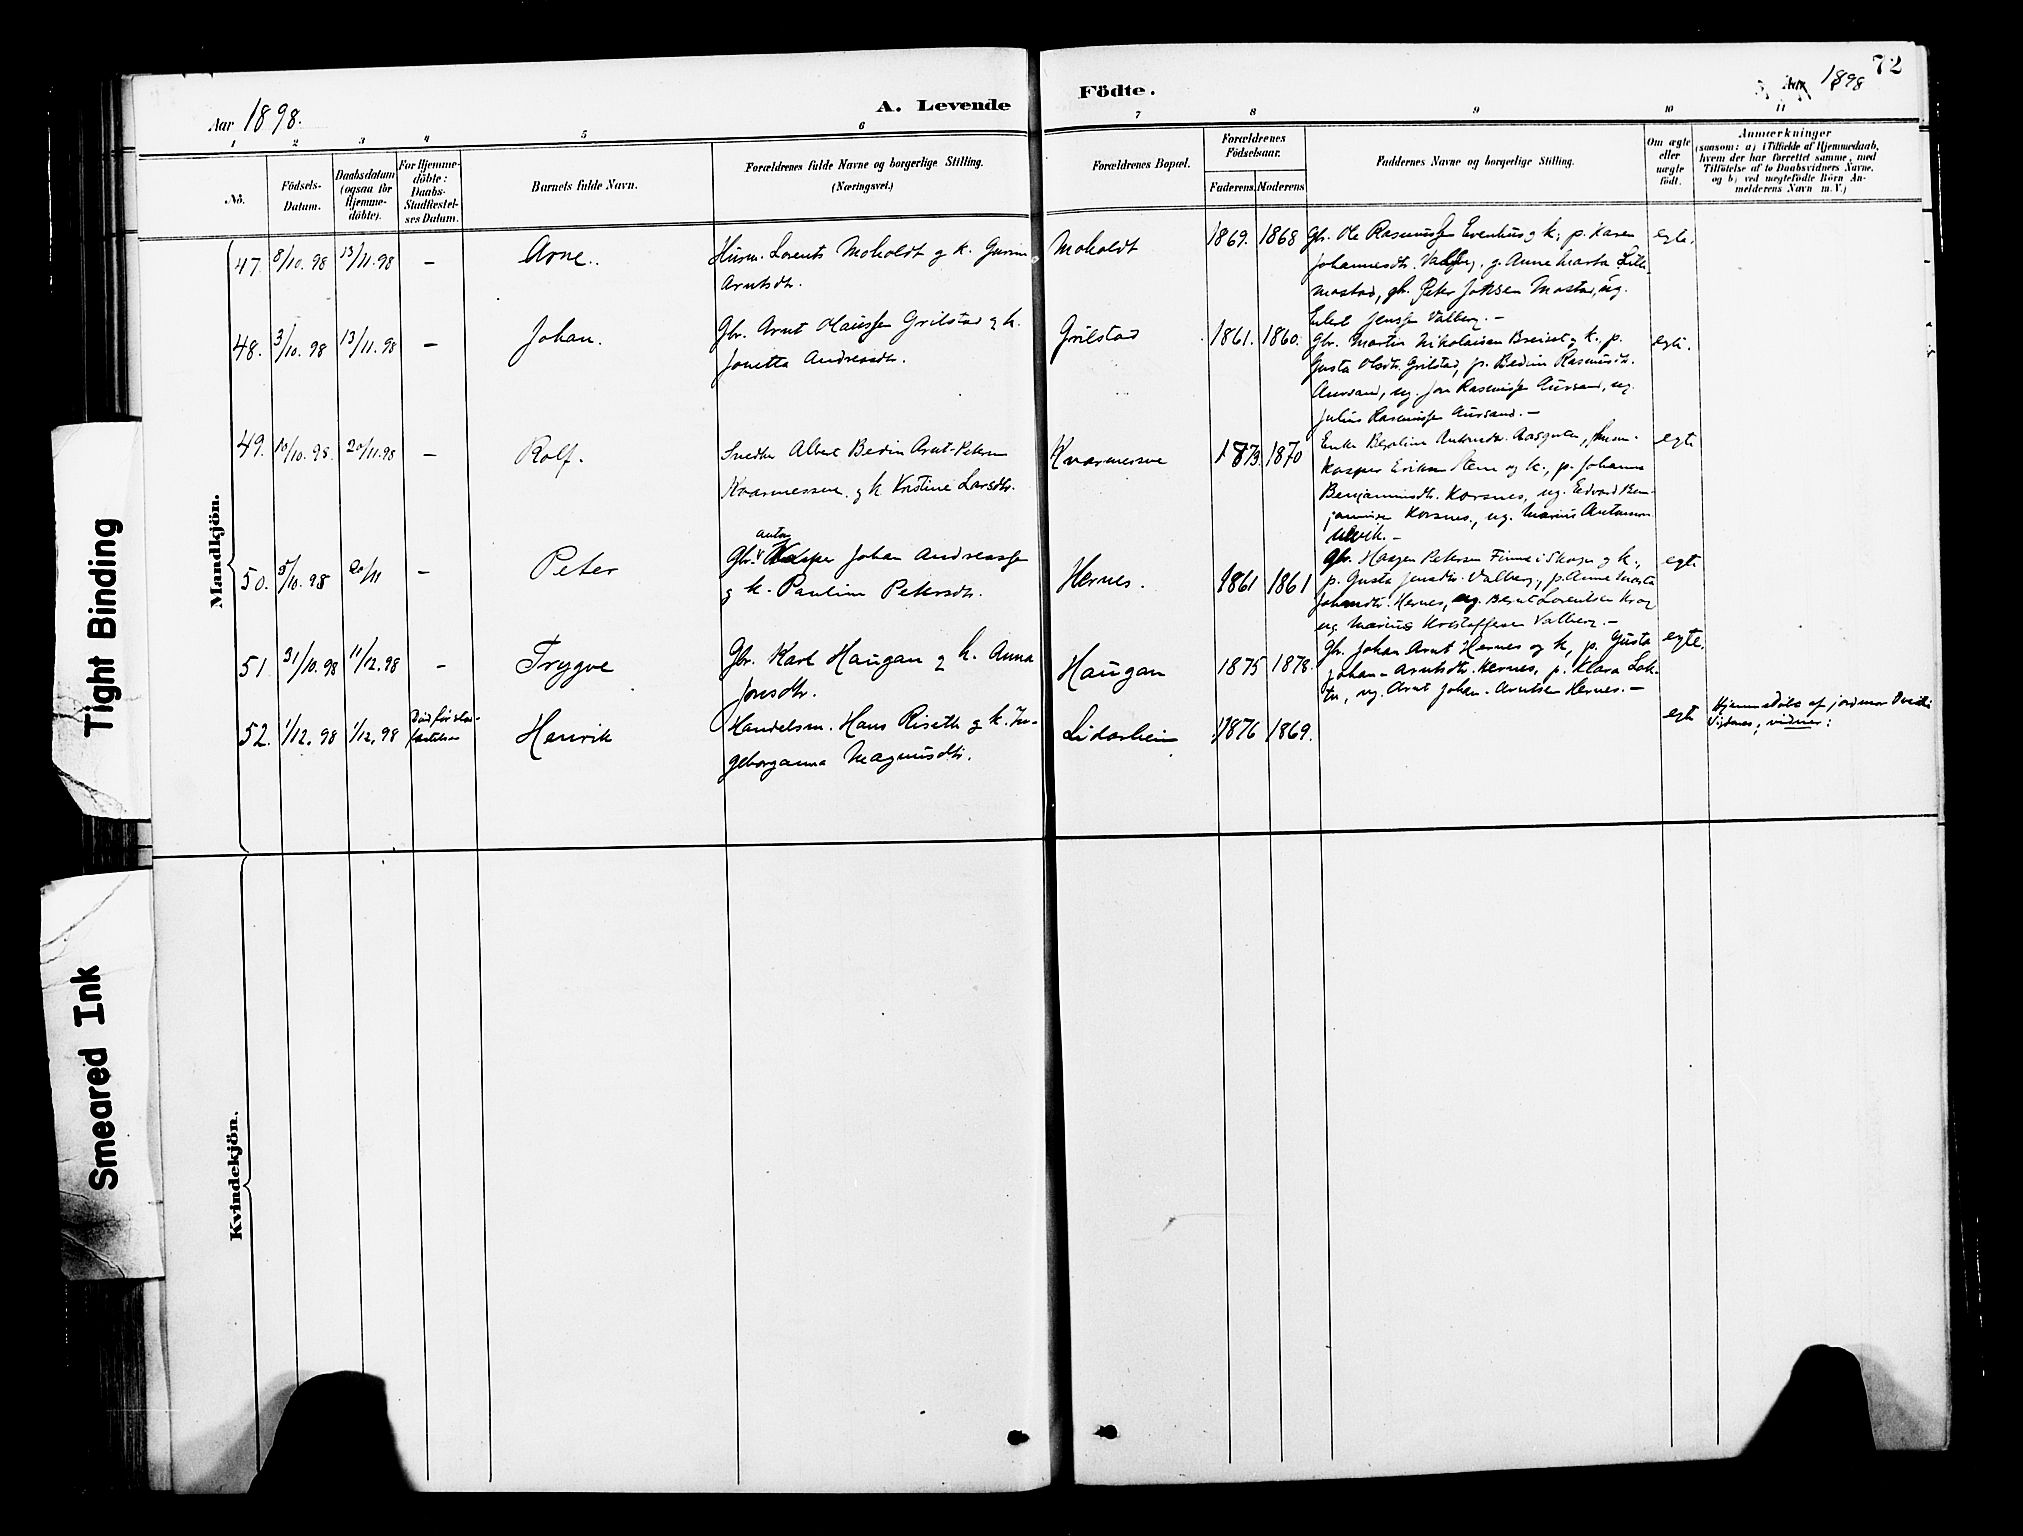 72
Aar 1898.
A. Levende
Födte.
Aar 1898
1 2 3 4 5 6 7 8 9 10 11
Nö.
Födsels-
Datum.
Daabsdatum
(ogsaa for
Hjemme-
döbte).
For Hjemme-
döbte:
Daabs-
Stadfæstel-
ses Datum.
Barnets fulde Navn.
Forældrenes fulde Navne og borgerlige Stilling.
(Næringsvei.)
Forældrenes Bopæl.
Forældrenes
Födselsaar.
Faderens. Moderens.
Faddernes Navne og borgerlige Stilling.
Om ægte
eller
uægte
födt.
Anmærkninger
(saasom: a) i Tilfælde af Hjemmedaab,
hvem der har forrettet samme, med
Tilföielse af to Daabsvidners Navne,
og b) ved uægtefödte Börn An-
melderens Navn m. V.)
Mandkjön.
47. 8/10. 98 13/11. 98 – Arne.
Husm. Lorents Moholdt og k. Gurin
Arntsdtr.
Moholdt
1869. 1868
Gbr. Ole Rasmussen Evenhus og k., p. Karen
Johannesdtr. Valberg, p. Anne Marta Lille-
mostad, gbr. Peter Johsen Mostad, ug.
Edert Jenssen Valberg. –
egte.
48. 3/10. 98 13/11. 98 – Johan.
Gbr. Arnt Olaussen Grilstad og k.
Jonetta Andreasdtr.
Grilstad
1861. 1860.
Gbr. Martin Nikolaisen Breiset og k., p.
Gusta Olsdtr. Grilstad, p. Bedine Rasmusdtr.
Aursand, ug. Jon Rasmussen Aursand, ug.
Julius Rasmussen Aursand. –
egte.
49. 10/10. 98. 20/11. 98 – Rolf.
Snedker Albert Bedin Arnt-Petersen
Kvarmessve. og k. Kristine Larsdtr.
Kvarmesve
1873. 1870
Enke Bergline Antonsdtr. Aasgulen, husm.
Kasper Eriksen Sten og k., p. Johanna
Benjaminsdtr. Korsnes, ug. Edvard Ben-
jaminsen Korsnes, ug. Marius Antonsen
Ulvik. –
egte
50. 5/10. 98 20/11 – Peter
Anton
Gbr. Kasper Johan Andreassen
og k. Pauline Petersdtr.
Hernes.
1861 1861
Gbr. Haagen Petersen Finne i Skogn og k.,
p. Gusta Jensdtr. Valberg, p. Anne Marta
Johansdtr. Hernes, ug. Bernt Lorentsen Krog
ug. Marius Kristoffersen Valberg. –
egte
51. 31/10. 98 11/12. 98 – Trygve
Gbr. Karl Haugan og k. Anna
Jonsdtr.
Haugan
1875 1878.
Gbr. Johan Arnt Hernes og k., p. Gusta
Johan-Arntsdtr. Hernes, p. Klara Lok-
tu, ug. Arnt Johan-Arntsen Hernes. –
egte.
52. 1/12. 98 1/12. 98
Död för stad-
fæstelse
Henrik
Handelsm. Hans Riseth og k. In-
geborganna Magnusdtr.
Lidarheim
1876 1869.
egte
Hjemmedöbt af jordmor
Vigdnes; vidner:
Kvindekjön.
Tight Binding
Smeared Ink